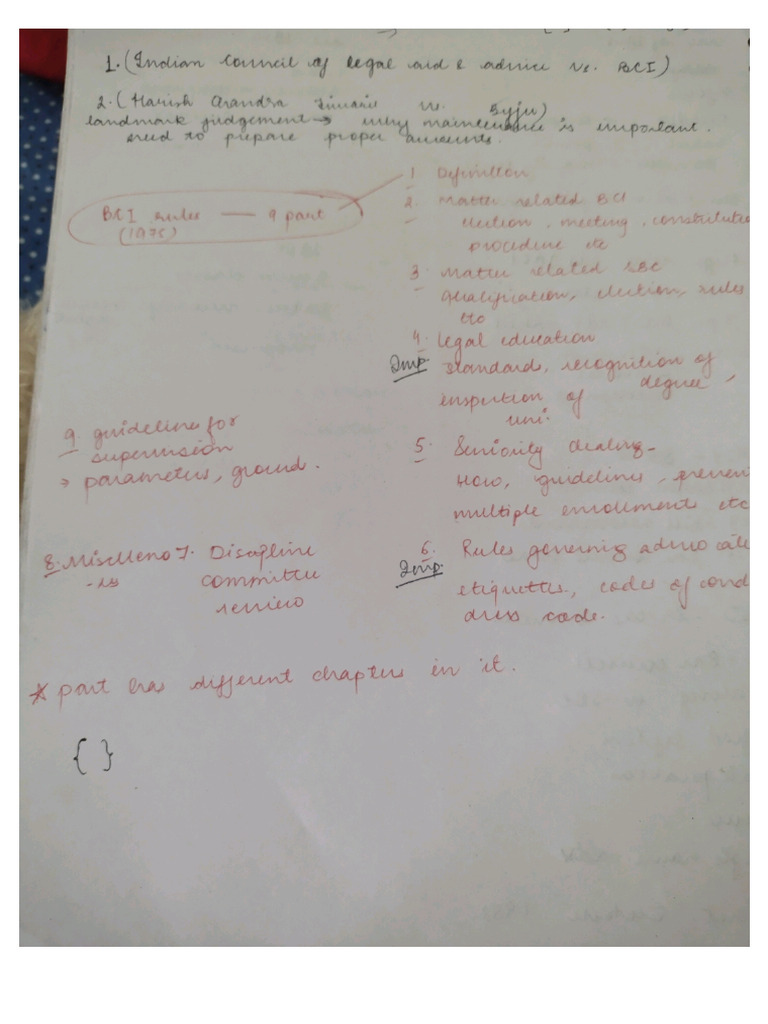 1. (Indian Council of legal aid & advice vs. BCI)
2. (Harish Chandra Tiwari vs. Byju)
landmark judgement → why maintenance is important.
need to prepare proper accounts.
BCI rules — 9 part
(1975)
1 Definition
2. Matter related BCI
election, meeting, constitution
procedure etc
3. Matter related SBC
qualification, election, rules
etc
4. Legal education
Imp. standard, recognition of
degree,
inspection of
uni.
5. Seniority dealing-
How, guidelines, preven
multiple enrollments etc
6. Rules governing advocate
Imp.
etiquettes, codes of cond
dress code.
7. Discipline
committee
review
8. Miscelleno
-us
9. guideline for
supervision
→ parameters, ground.
* part has different chapters in it.
{ }